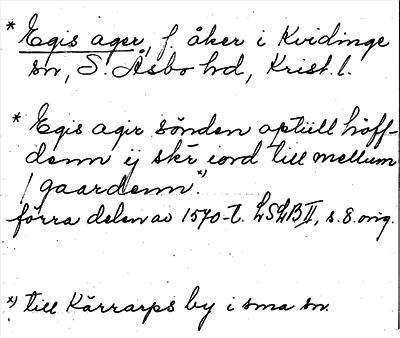 * Egis ager, f. åker i Kvidinge
sn, S. Åsbo hd, Krist. l.
* Egis agir sönden optiill höff-
denn ij skr iord till mellum
/ gaardenn. *)
förra delen av 1570-t. LSLB II, s. 8. orig.
*) till Kärrarps by i sma sn.